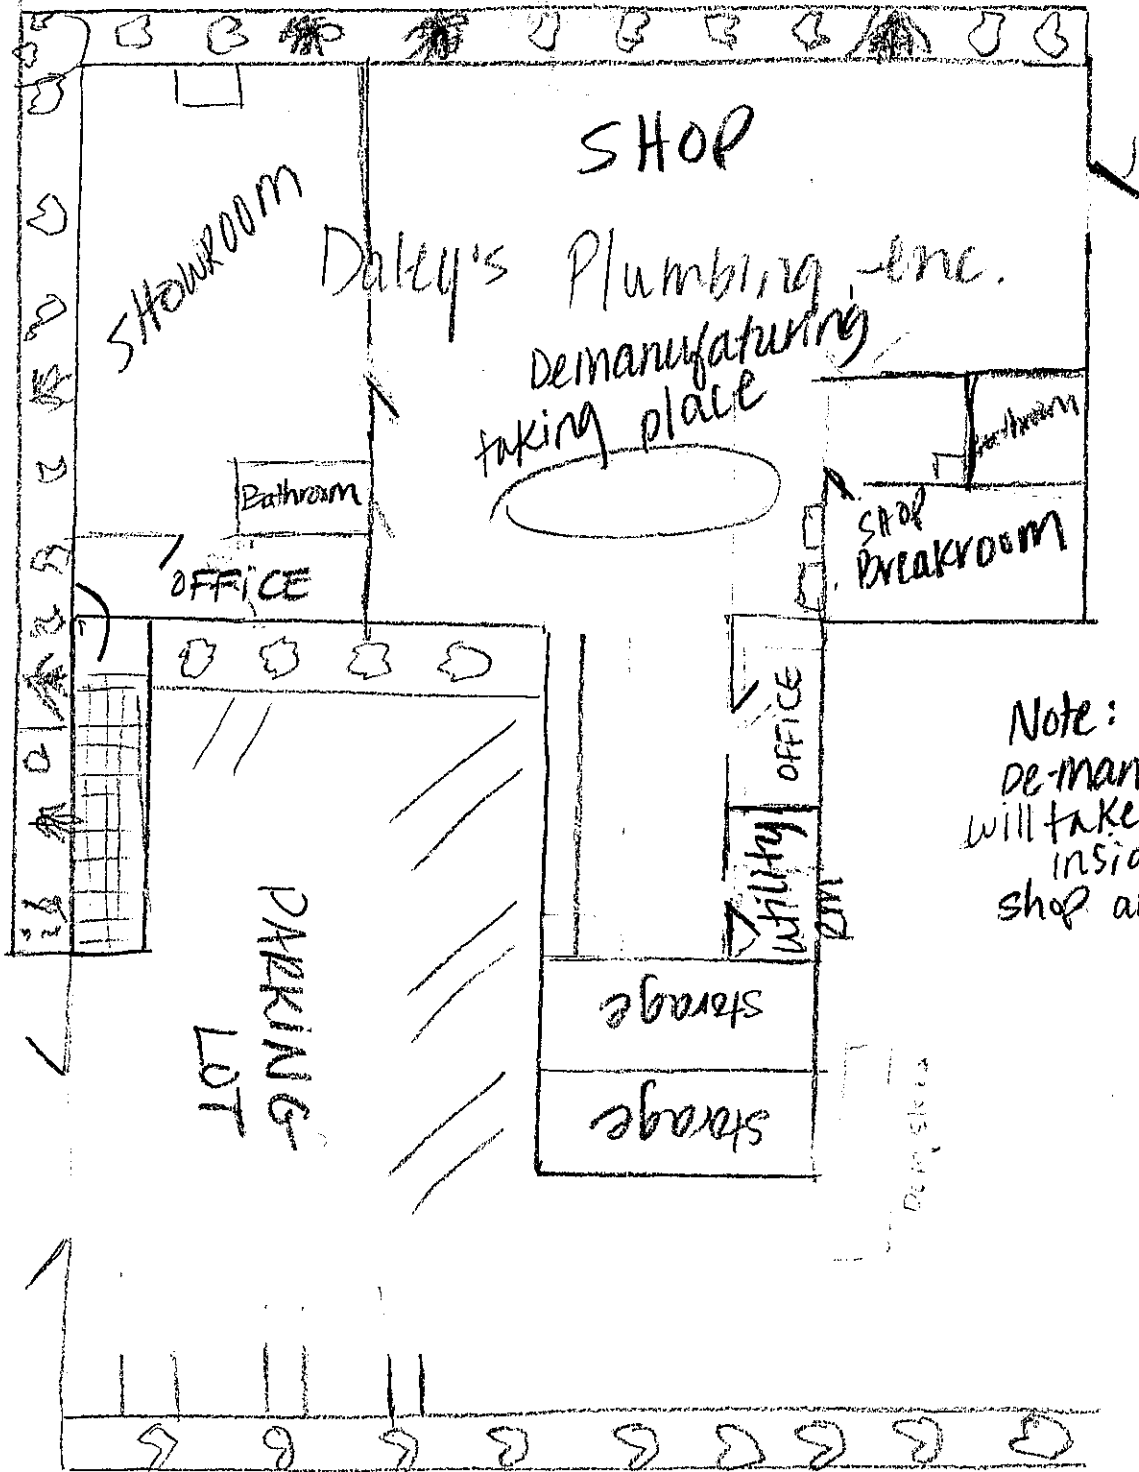 SHOP
SHOWROOM
Daley's Plumbing, Inc.
Demanufaturing
taking place
Bathroom
Bathroom
SHOP
Breakroom
OFFICE
OFFICE
Note:
De-man
will take
insid
shop ar
utility
RM
PARKING
LOT
Storage
Storage